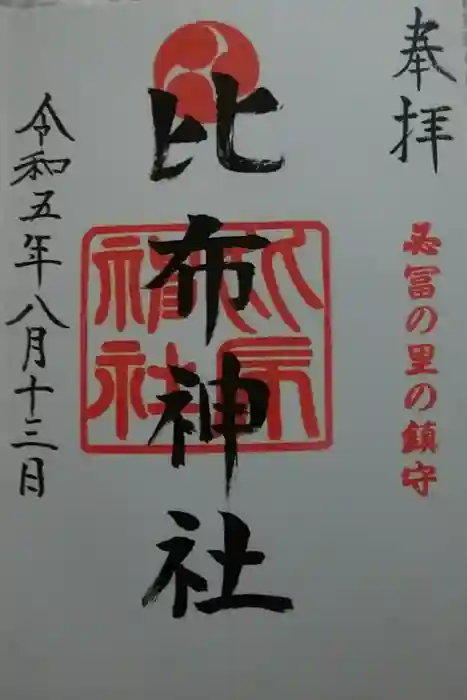 奉拝
冨の里の鎮守
比布神社
令和五年八月十三日